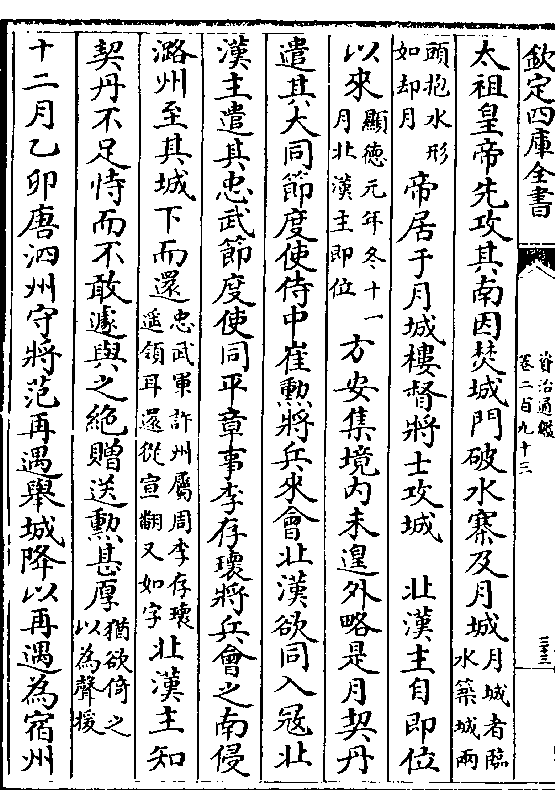 欽定四庫全書
資治通鑑
卷二百九十三
太祖皇帝先攻其南因焚城門破水寨及月城月城者臨水築城兩
頭抱水形如却月 帝居于月城樓督將士攻城 北漢主自即位
以來顯德元年冬十一月北漢主即位方安集境内未遑外略是月契丹
遣其大同節度使侍中崔勲將兵來會北漢欲同入冦北
漢主遣其忠武節度使同平章事李存瓌將兵會之南侵
潞州至其城下而還忠武軍許州屬周李存瓌遥領耳還從宣翻又如字北漢主知
契丹不足恃而不敢遽與之絶贈送勲甚厚猶欲倚之以為聲援
十二月乙卯唐泗州守將范再遇舉城降以再遇為宿州